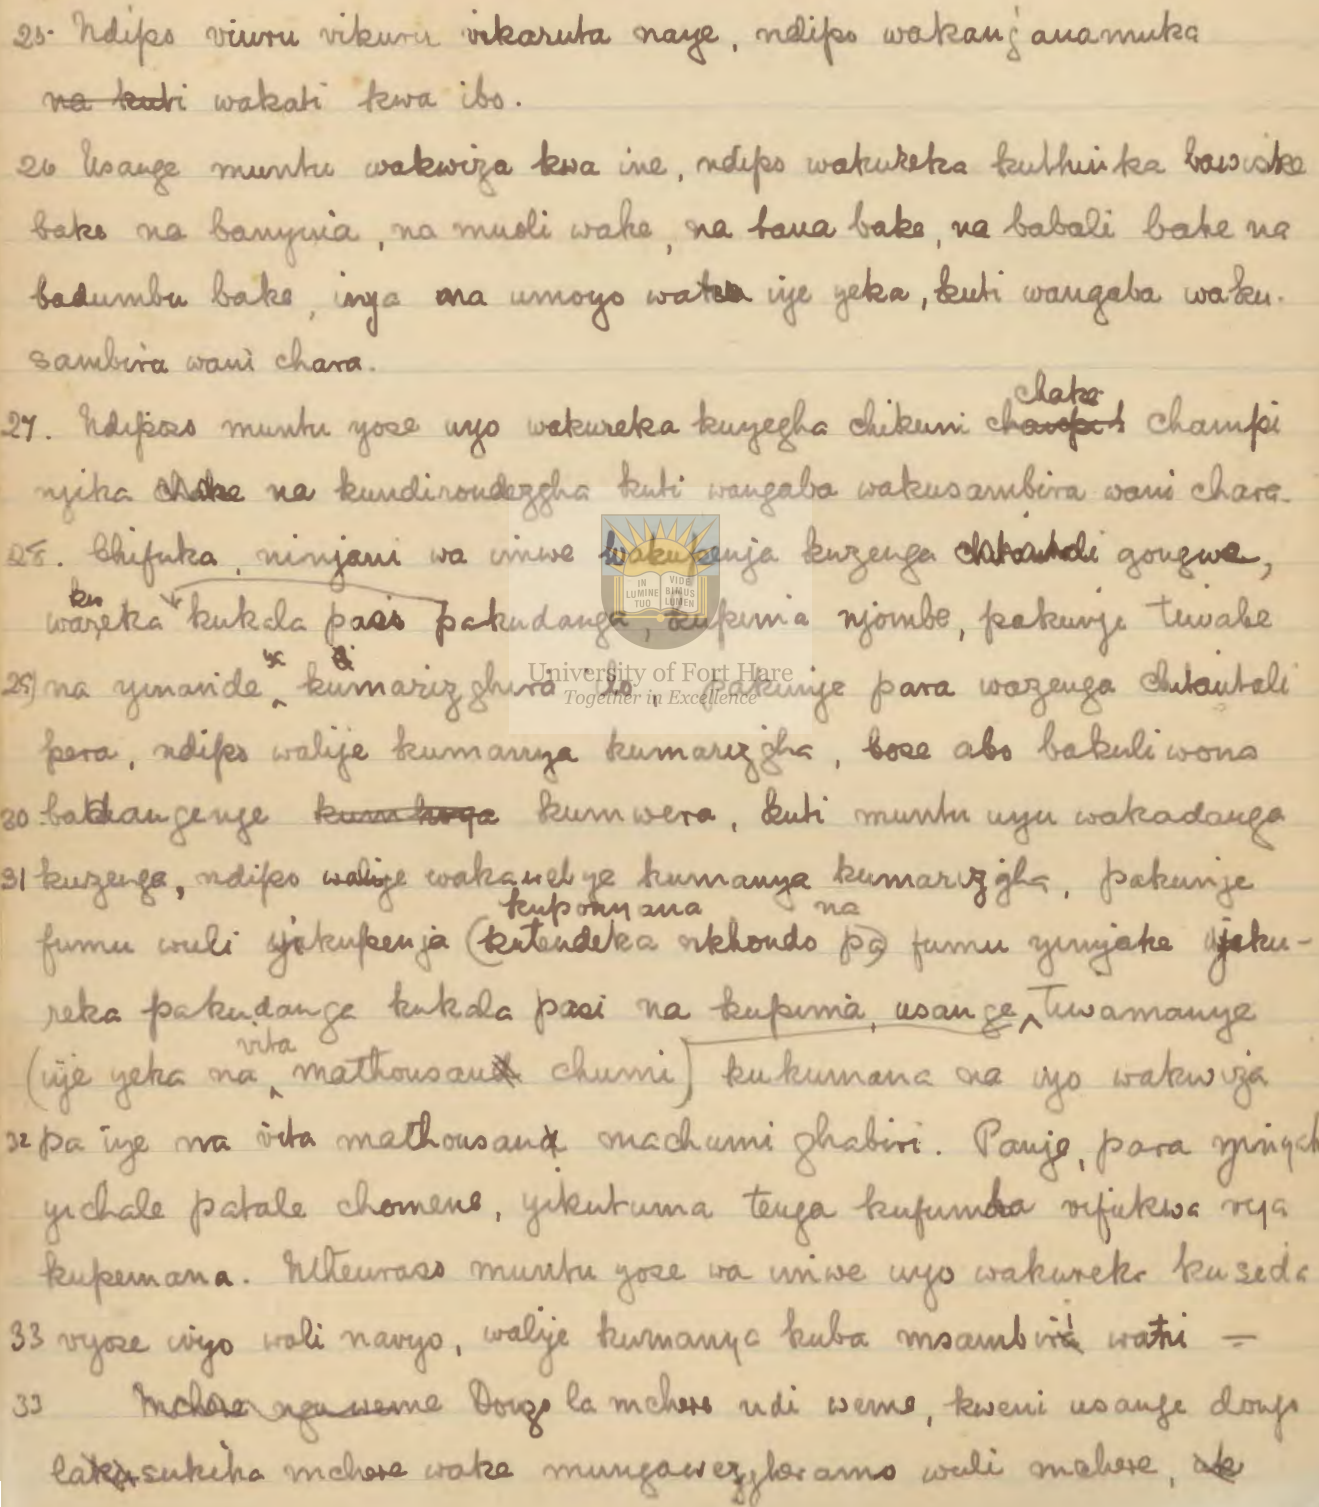 25. Ndipo viwru vikuru vikaruta naye, ndipo wakang'anamuka
na kuti wakati kwa ibo.
26 Usange muntu wakwiza kwa ine, ndipo wakureka kuthinka bawiske
bake na banyina, na muoli wake, na bana bake, na babali bake na
badumbu bake, inya na umoyo wake iye yeka, kuti wangaba waku-
sambira wani chara.
27. Ndiposo muntu yose uyo wakureka kuyegha chikuni chake champi
njika chake na kundirondezgha kuti wangaba wakusambira wani chara.
28. Chifuka, ninjani wa imwe wakupenja kuzenga chitantali gongwe,
wakureka kukala pasi pakudanga, kupima njombe, pakunji tiwabe
29) na yinande ya kumarizghira ilo, pakunje para wazenga chitantali
pera, ndipo walije kumanya kumarizgha, bose abo bakuliwona
30 bakhangenge kumwera, kuti muntu uyu wakadanga
31 kuzenga, ndipo walije kumanya kumarizgha, pakunje
kuponyana na
fumu wuli yikupenja (kutendeka nkhondo pa) fumu yinjake yiku-
reka pakudanga kukala pasi na kupima, usange Tiwamanye
vita
(iije yeka na mathousand chumi) kukumana na uyo wakwiza
32 pa iye na vita mathousand machumi ghabiri. Panje, para yinyake
yichale patale chomene, yikutuma tenga kufumba vifukwa vya
kupemana. Nteuraso muntu yose wa imwe uyo wakureka kuseda
33 vyose ivyo wali navyo, walije kumanya kuba msambiri wani —
33 Mchere ngu weme Dongo la mchere ndi weme, kweni usange dongo
lakusukika mchere wake mungawezgheramo wuli mchere,
IN LUMINE TUO VIDE BIMUS LUMEN
University of Fort Hare
Together in Excellence